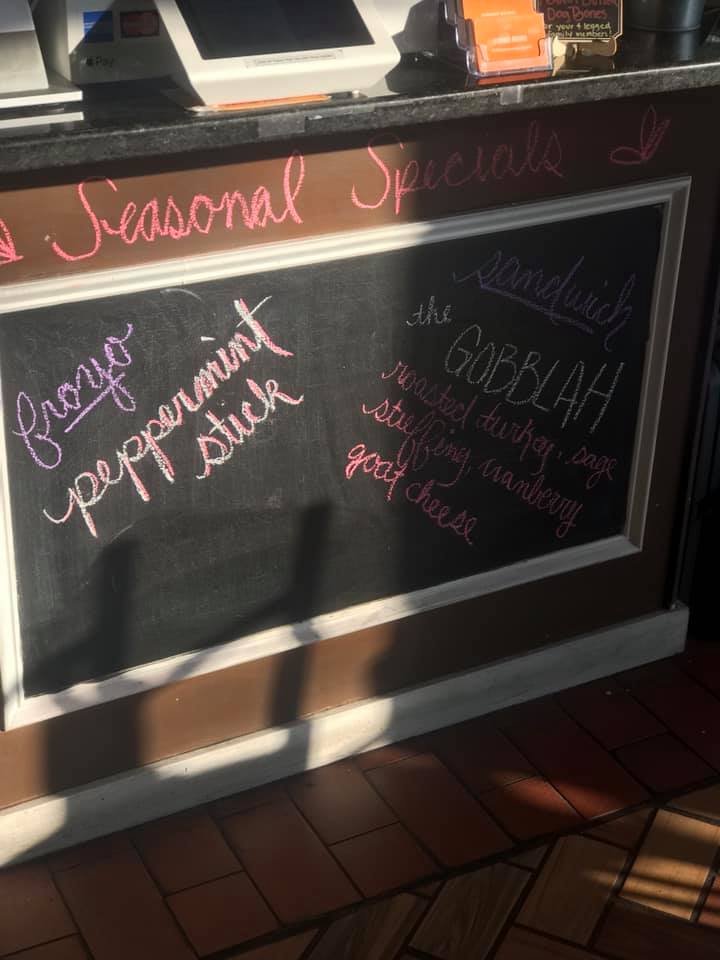 Pay
Dog Bones
for your 4 legged
family members!
Seasonal Specials
froyo
peppermint
stick
sandwich
the
GOBBLAH
roasted turkey, sage
stuffing, cranberry
goat cheese